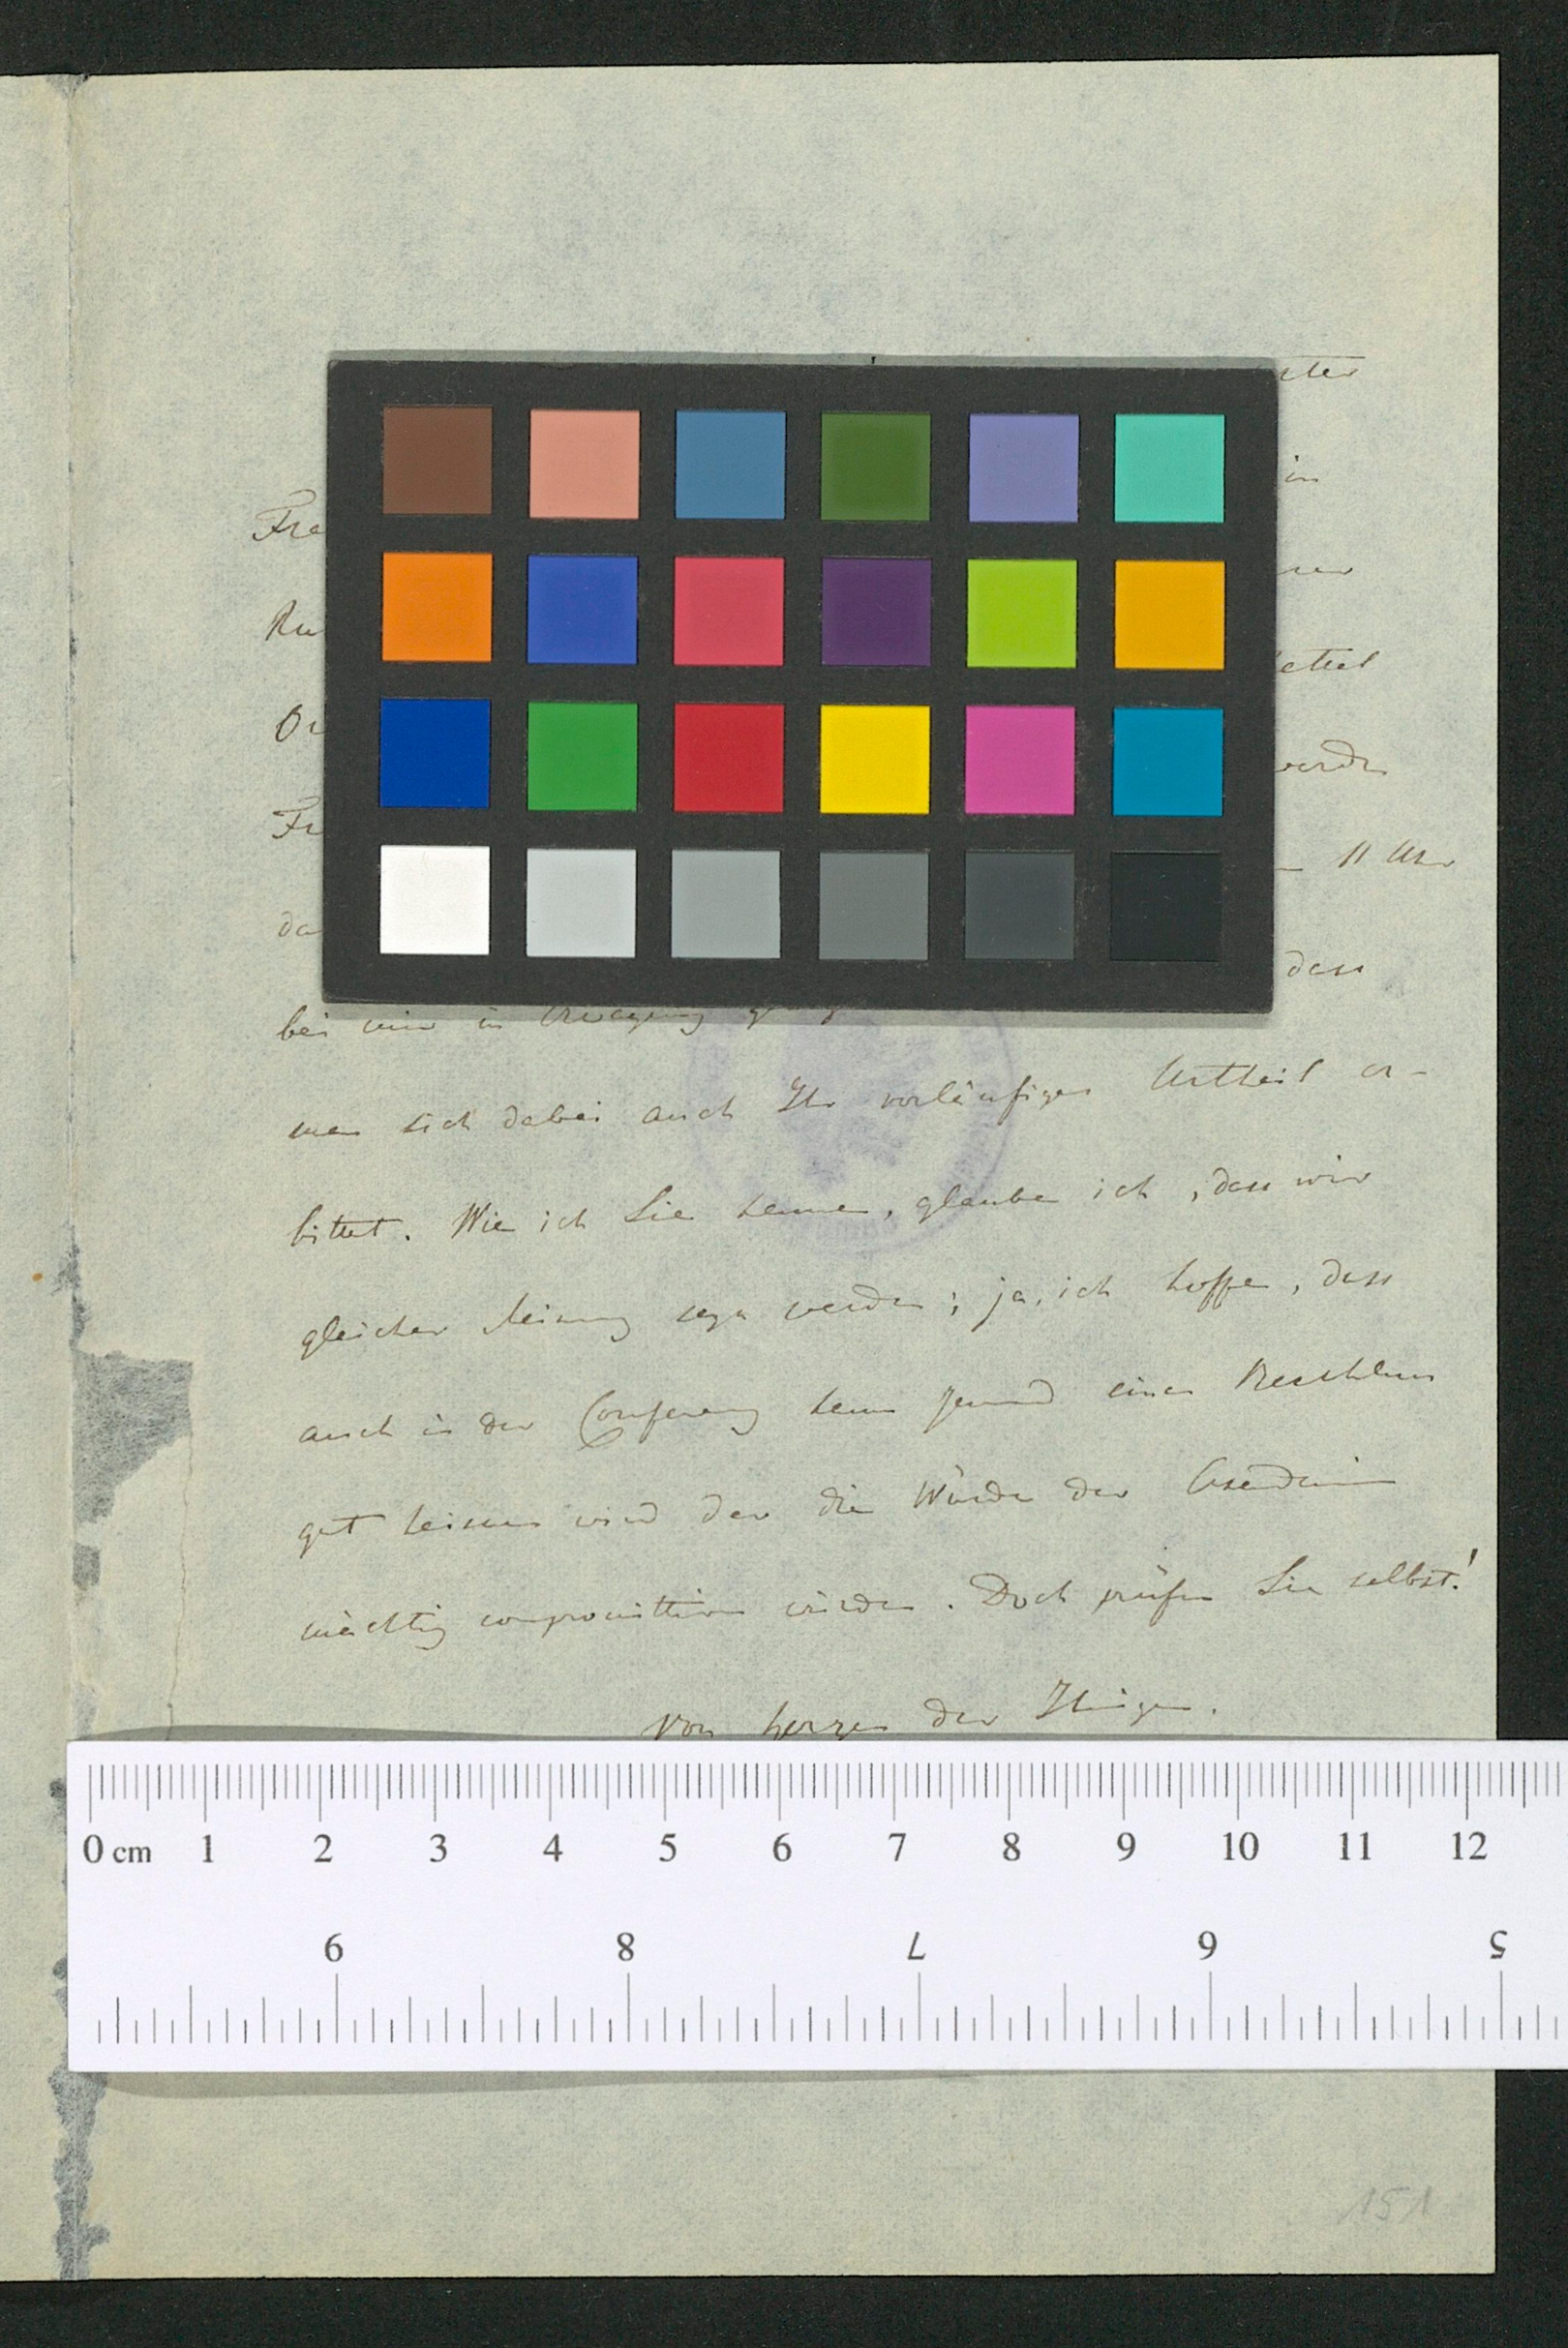 in
Fre
Ru
Or
Fr
11 Uhr
da
dass
bei mir in Erwägung
man sich dabei auch Ihr vorläufiges Urtheil er-
bittet. Wie ich Sie kenne, glaube ich, dass wir
gleicher Meinung seyn werden; ja, ich hoffe, dass
auch in der Conferenz kein Jemand einen Beschluss
gut heissen wird der die Würde der Academie
mächtig compromittiren würde. Doch prüfen Sie selbst!
Von Herzen der Ihrige.
0 cm 1 2 3 4 5 6 7 8 9 10 11 12
9 8 7 6 5
151